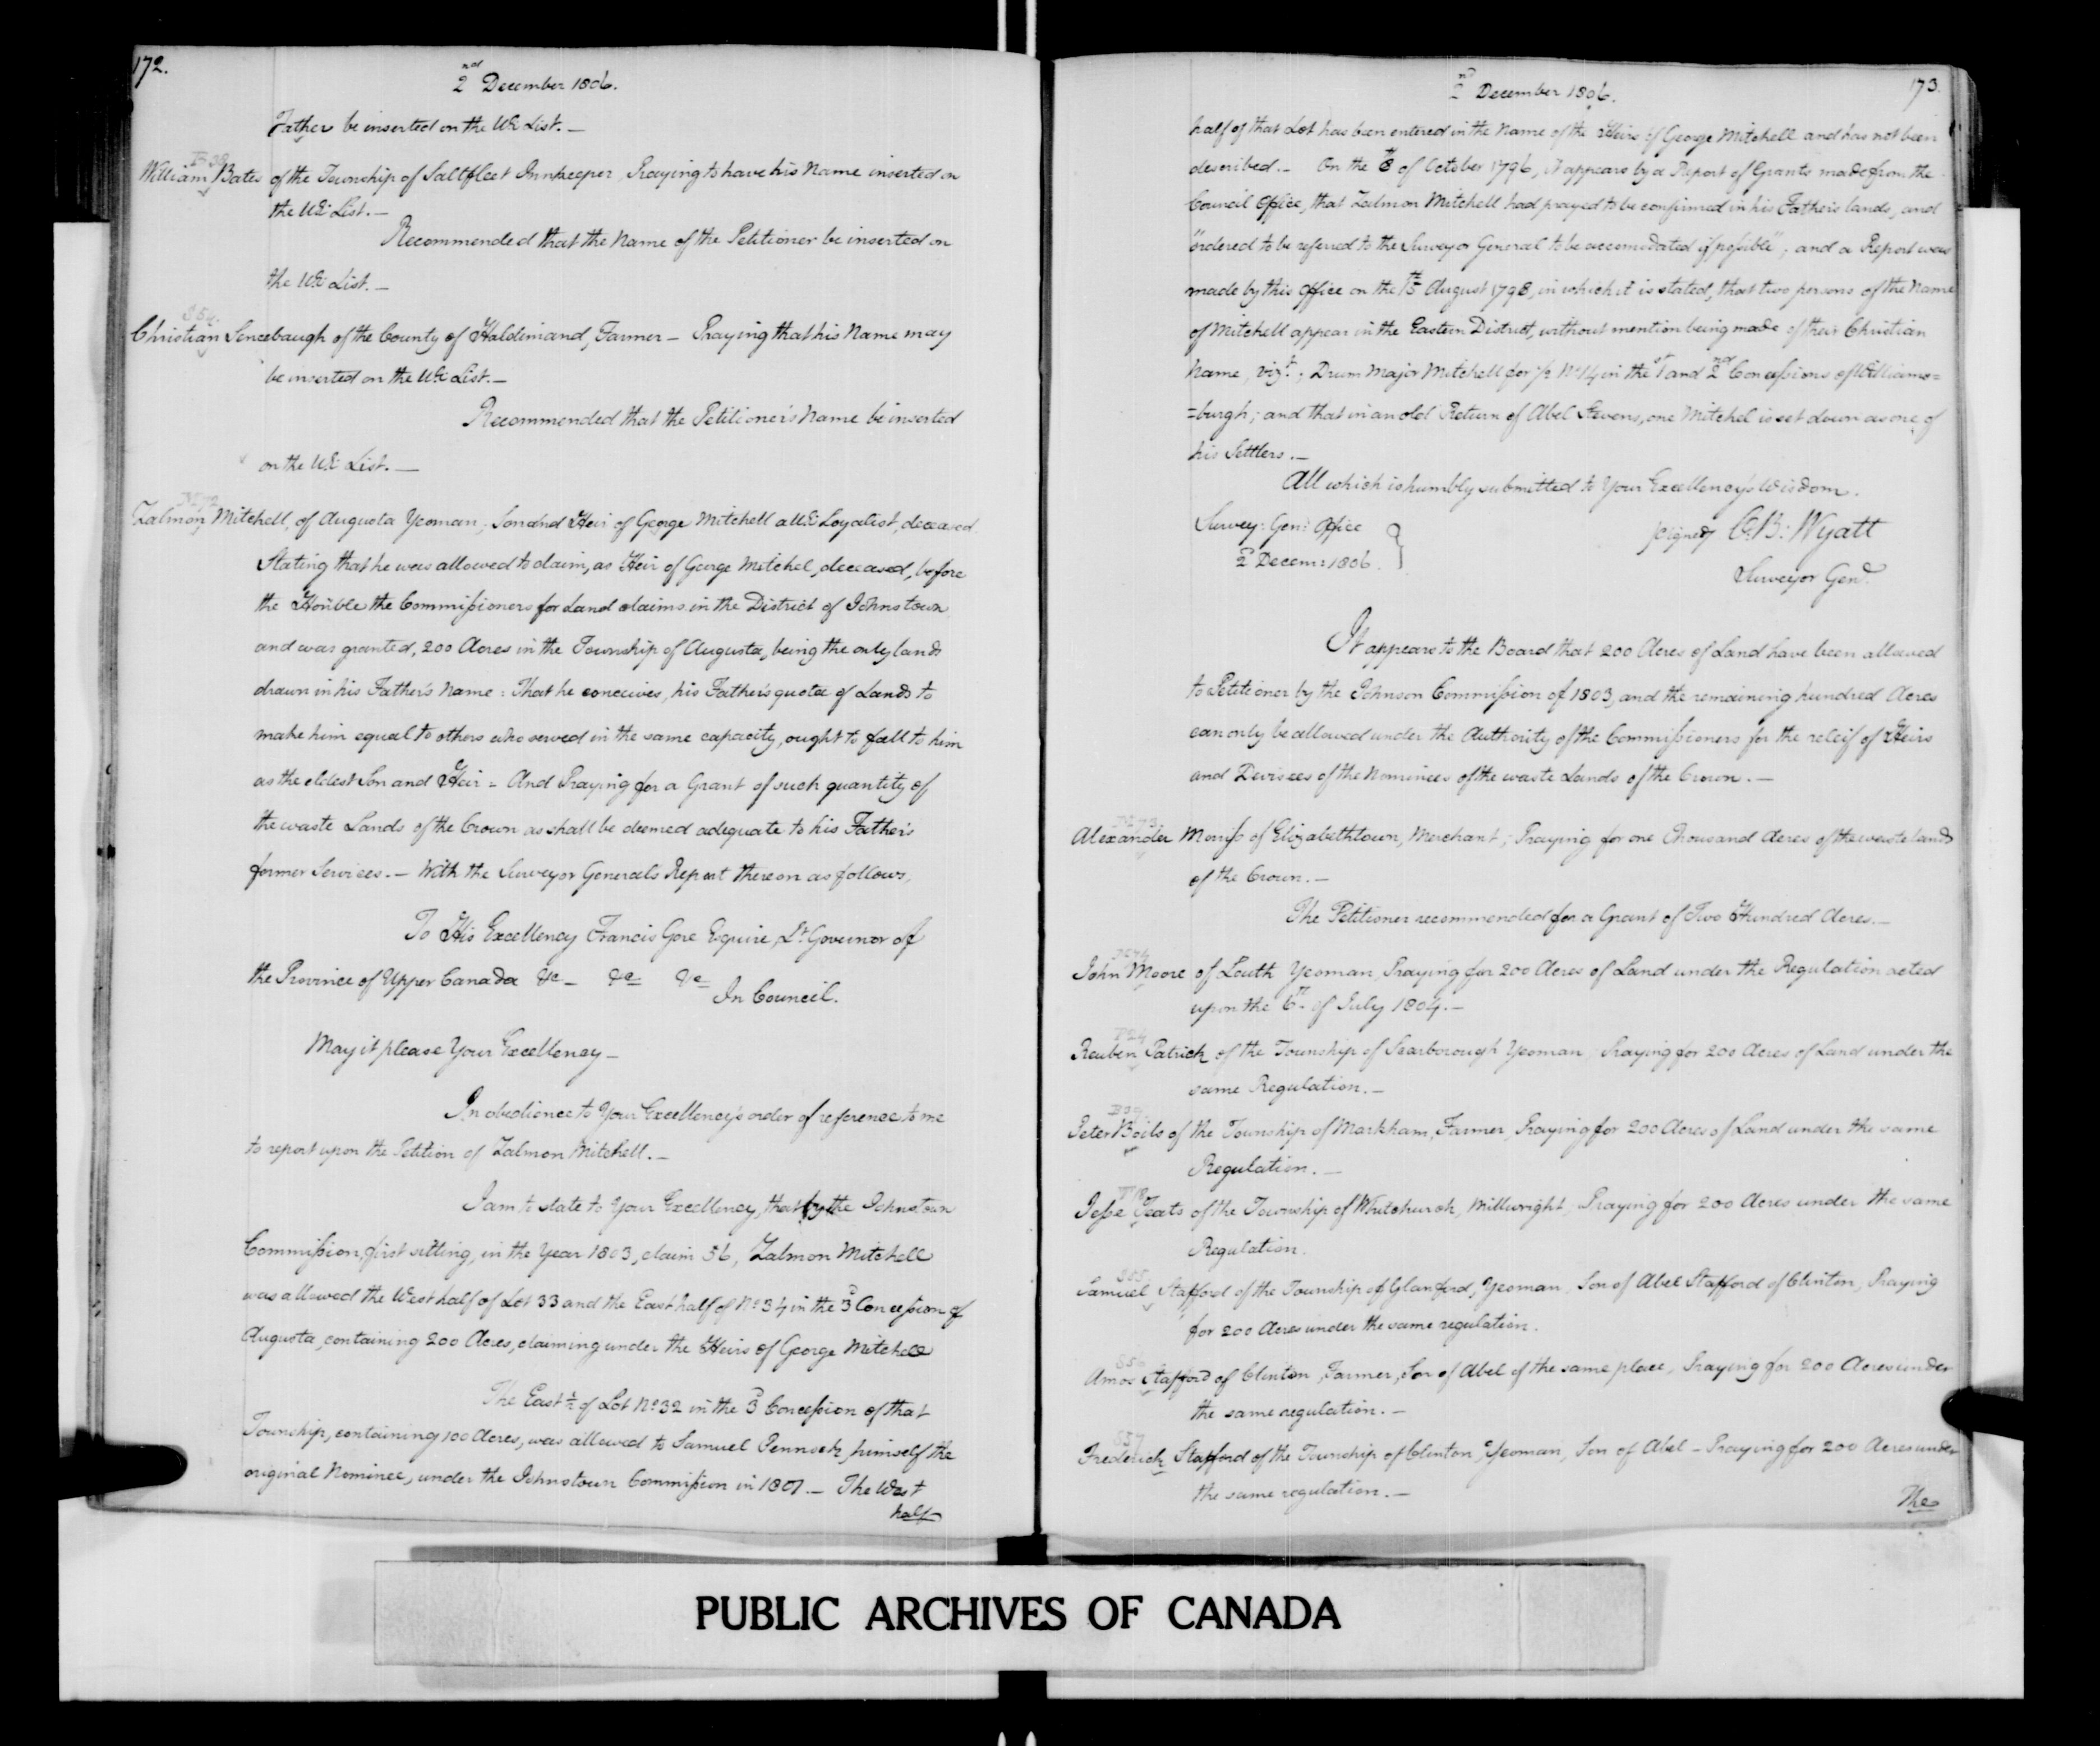 172.
2nd December 1806.
Father be inserted on the UE List. —
B 38
William Bates of the Township of Saltfleet Innkeeper, Praying to have his Name inserted on
the UE List. —
Recommended that the Name of the Petitioner be inserted on
the UE List. —
S 54.
Christian Sencebaugh of the County of Haldimand, Farmer — Praying that his Name may
be inserted on the UE List. —
Recommended that the Petitioner's Name be inserted
on the UE List. —
M 72
Zalmon Mitchell, of Augusta Yeoman; Son and Heir of George Mitchell a UE Loyalist, deceased
Stating that he was allowed to claim, as Heir of George Mitchel, deceased, before
the Honble the Commissioners for Land claims in the District of Johnstown
and was granted, 200 Acres in the Township of Augusta, being the only lands
drawn in his Father's Name: That he conceives, his Father's quota of Lands to
make him equal to others who served in the same capacity, ought to fall to him
as the eldest Son and Heir = And Praying for a Grant of such quantity of
the waste Lands of the Crown as shall be deemed adequate to his Father's
former Services. — With the Surveyor General's Report thereon as follows,
To His Excellency Francis Gore Esquire, Lt Governor of
the Province of Upper Canada &c — &c &c
In Council.
May it please Your Excellency —
In obedience to Your Excellency's order of reference to me
to report upon the Petition of Zalmon Mitchell. —
I am to state to Your Excellency, that by the Johnstown
Commission, first sitting, in the Year 1803, claim 56, Zalmon Mitchell
was allowed the West half of Lot 33 and the East half of No 34 in the 3d Concession of
Augusta, containing 200 Acres, claiming under the Heirs of George Mitchell
The East ½ of Lot No 32 in the 3d Concession of that
Township, containing 100 Acres, was allowed to Samuel Pennock, himself the
original Nominee, under the Johnstown Commission in 1807. — The West
half
2nd December 1806.
173.
half of that Lot has been entered in the Name of the Heirs of George Mitchell and has not been
described. — On the 8th of October 1796, it appears by a Report of Grants made from the
Council Office, that Zalmon Mitchell had prayed to be confirmed in his Father's lands, and
"ordered to be referred to the Surveyor General to be accomodated if possible"; and a Report was
made by this Office on the 15th August 1798, in which it is stated, that two persons of the Name
of Mitchell appear in the Eastern District, without mention being made of their Christian
Name, vizt.; Drum Major Mitchell for ½ No 14 in the 1st and 2nd Concessions of Williams=
=burgh; and that in an old Return of Abel Stevens, one Mitchel is set down as one of
his Settlers. —
All which is humbly submitted to Your Excellency's Wisdom.
Survey: Genl Office
2d Decem: 1806.
signed C.B: Wyatt
Surveyor Genl.
It appears to the Board that 200 Acres of Land have been allowed
to Petitioner by the Johnson Commission of 1803, and the remaining hundred Acres
can only be allowed under the Authority of the Commissioners for the releif of Heirs
and Devisees of the Nominees of the waste Lands of the Crown. —
M 73
Alexander Morriss of Elizabethtown, Merchant; Praying for one Thousand Acres of the waste lands
of the Crown. —
The Petitioner recommended for a Grant of Two Hundred Acres. —
M 74
John Moore of Louth Yeoman, Praying for 200 Acres of Land under the Regulation acted
upon the 6th of July 1804. —
P 24
Reuben Patrick of the Township of Scarborough Yeoman; Praying for 200 Acres of Land under the
same Regulation. —
B 39
Peter Boils of the Township of Markham, Farmer, Praying for 200 Acres of Land under the same
Regulation. —
T 18
Jesse Teats of the Township of Whitchurch, Millwright, Praying for 200 Acres under the same
Regulation.
S 55
Samuel Stafford of the Township of Glanford, Yeoman, Son of Abel Stafford of Clinton, Praying
for 200 Acres under the same regulation.
S 56
Amos Stafford of Clinton, Farmer, Son of Abel of the same place, Praying for 200 Acres under
the same regulation. —
S 57
Frederick Stafford of the Township of Clinton, Yeoman, Son of Abel — Praying for 200 Acres under
the same regulation. —
The
PUBLIC ARCHIVES OF CANADA